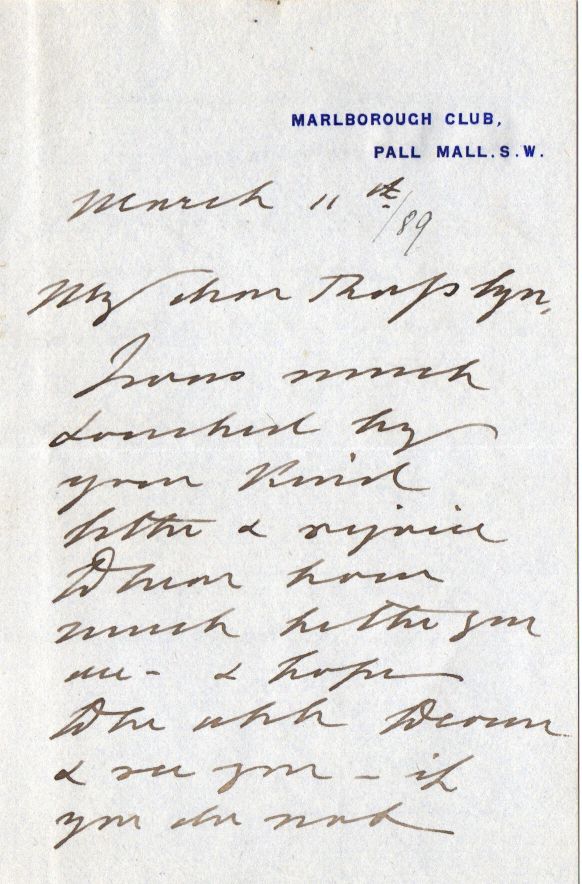 MARLBOROUGH CLUB,
PALL MALL. S. W.
March 11th/89
My dear
I was much
touched by
your kind
letter & rejoice
to hear how
much better you
are - & hope
to be able to come
& see you - if
you do not